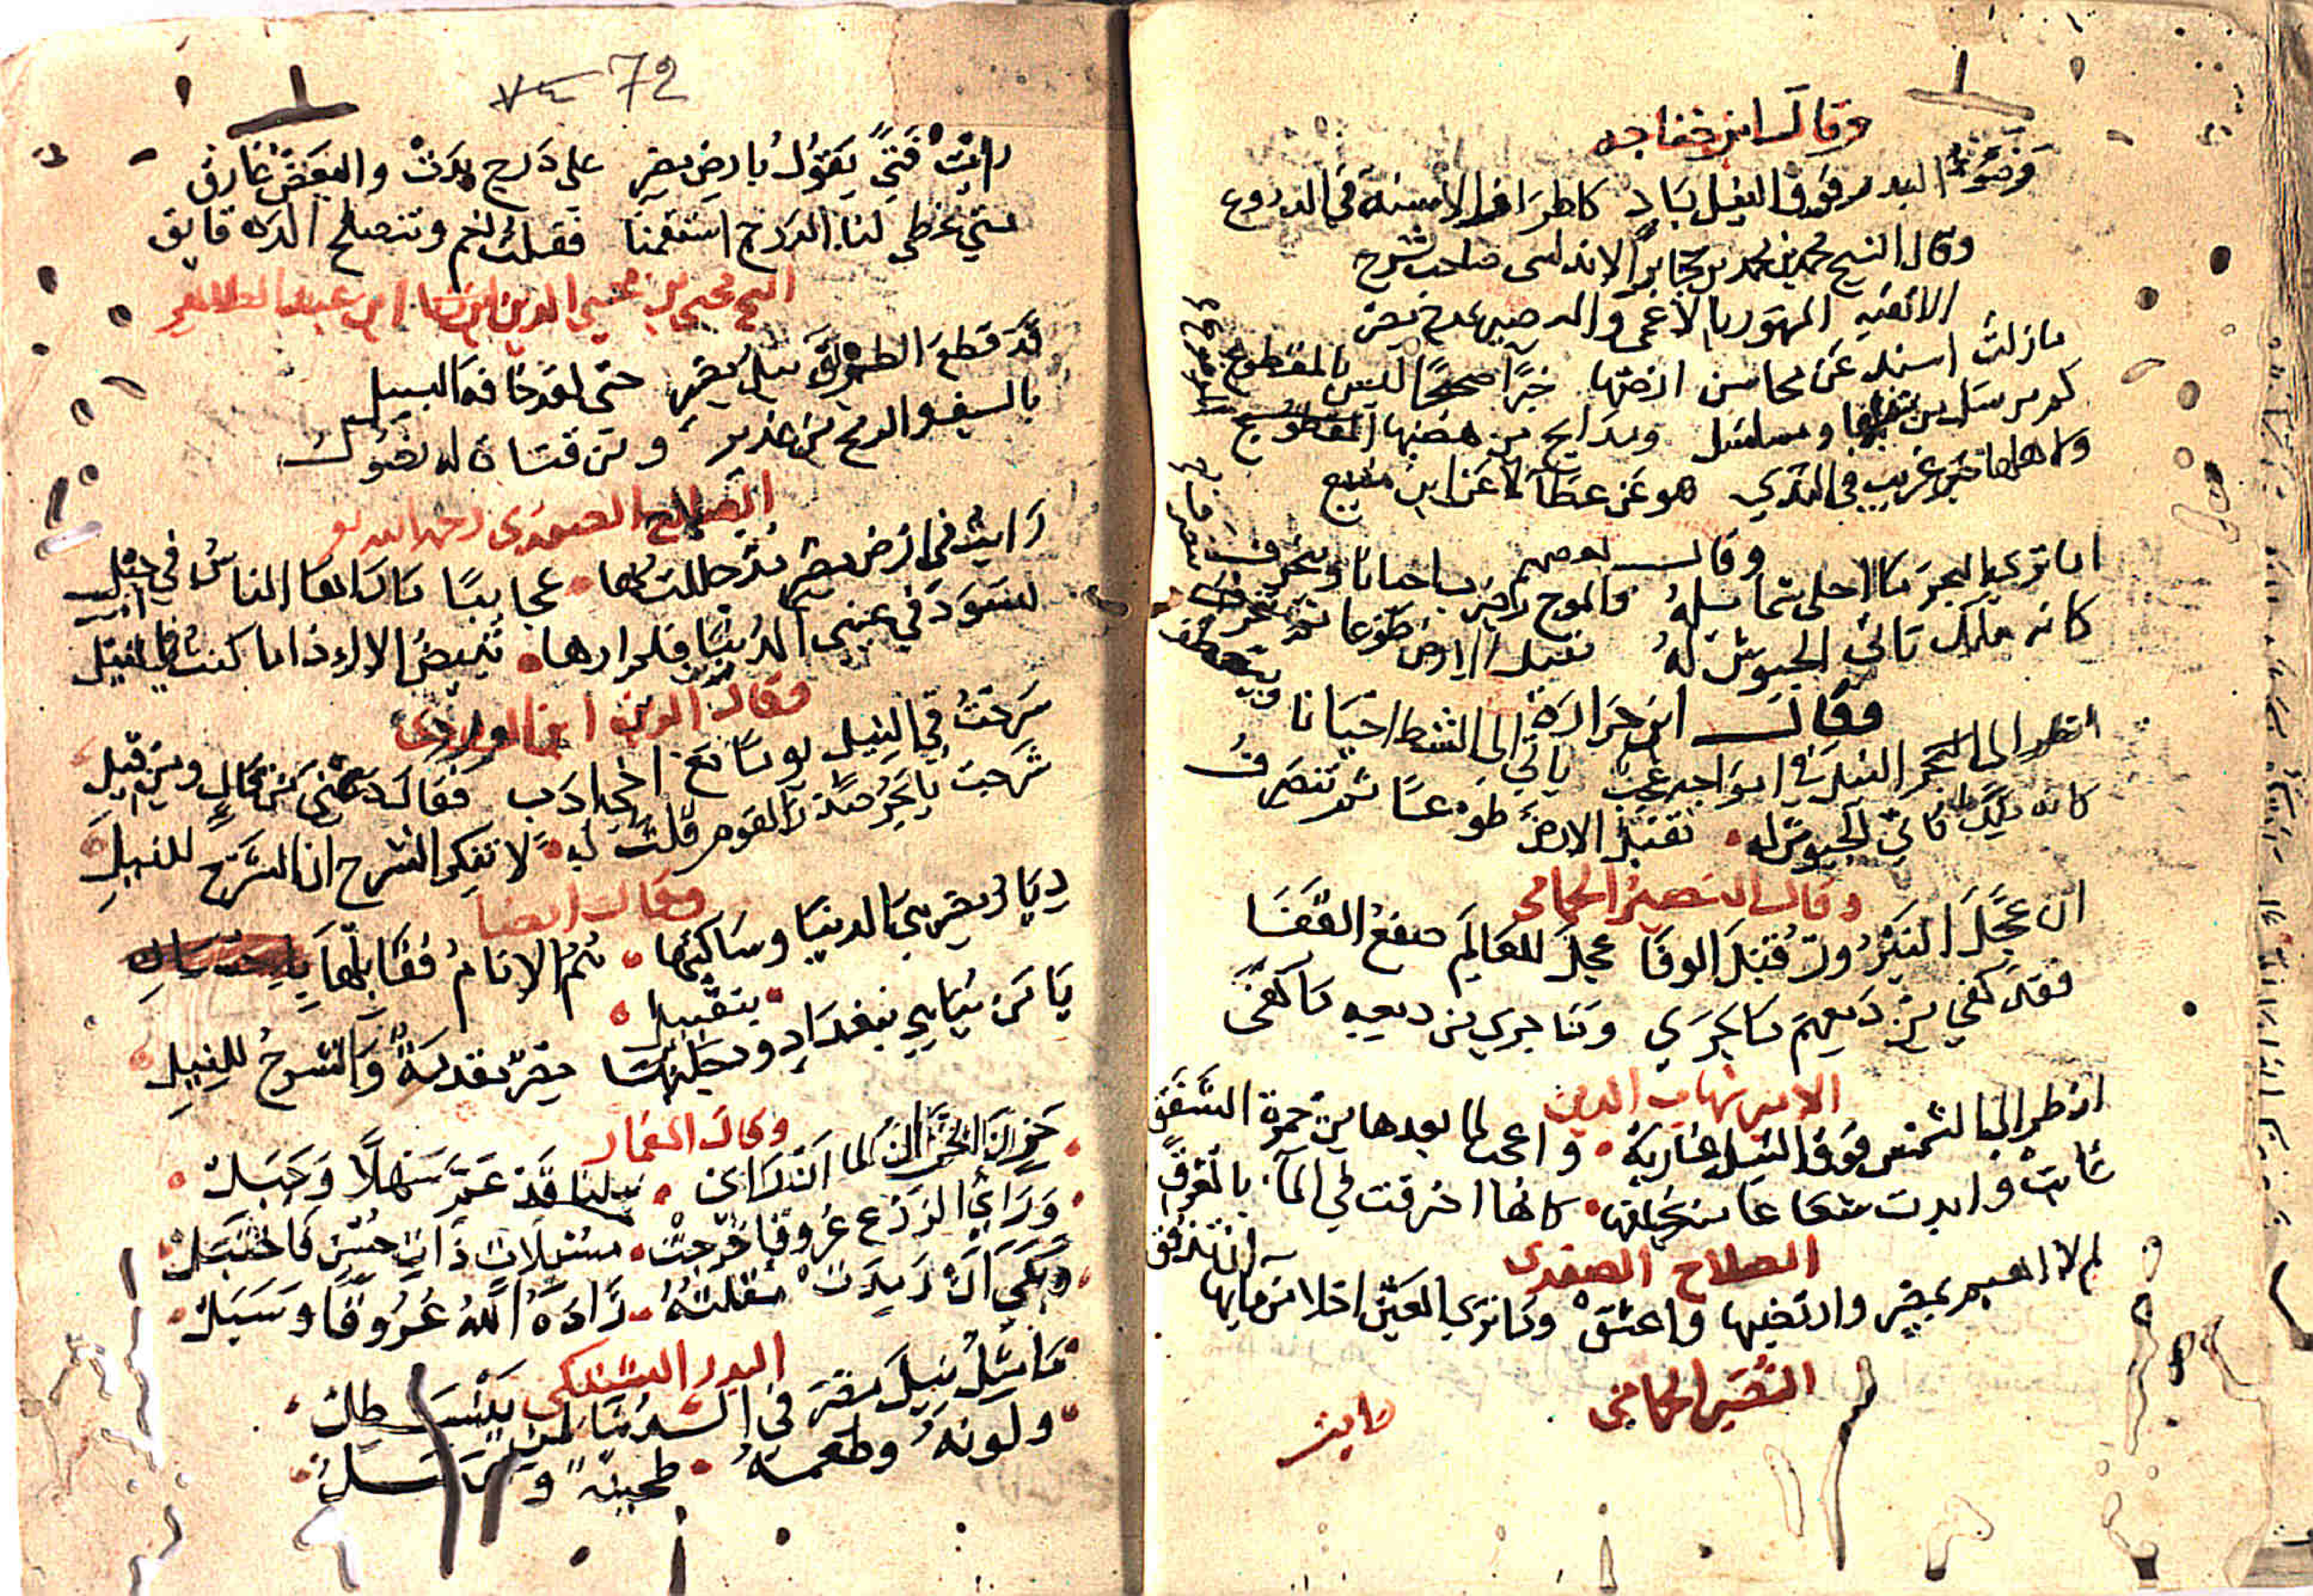 وقال ابن خفاجه
وضوء البدر فوق النيل باد كاطراف الاسنة في الدروع
وقال الشيخ محمد بن محمد بن جابر الاندلسي صاحب شرح
الالفيه المشهور بالاعمى والبصير يمدح مصر
مازلت اسند عن محاسن ارضها خبرًا صحيحًا ليس بالمقطوع
كم مرسل من نيلها ومسلسل ومدايح من هضبها المقطوع
ولاهلها خبر غريب في الندي هو عن عطآ لا عن ابن منيع
وقال بعضهم
اما تري البحر ما احلى شمايله والموج ياتي احيانا وينحرف
كانه ملك تاتي الجيوش له تقبل الارض طوعا ثم تنصرف
وقال ابن جرادة
انظر الى البحر النيل في امواجه عجب ياتي الى الشط احيانا وينعطف
كانه ملك تاتي الجيوش له تقبل الارض طوعًا ثم تنصرف
وقال النصير الحمامي
ان عجل النيروز قبل الوفا عجل للعالم صفع القفا
فقد كفي من دمعهم ما جري وما جري من دمعه ما كفى
الامير شهاب الدين
انظر الي الشمس فوق النيل غاربة واعجب لما بعدها من حمرة الشفق
غابت وابدت شعاعا منه يخلفها كانها احرقت في المآء بالغرق
الصلاح الصفدى
لم لا اهيم بمصر وارتضيها واعشق وما تري العين احلا من مايها ان تدفق
النصير الحمامي
رايت
٧٤ 72
رايت فتي يقول بارض مصر على درج بدت والبعض غارق
متي غطي لنا الدرج استقمنا فقلت نعم وتنصلح الدقايق
محيي الدين ابن عبد الظاهر
قد قطع الطرق نيل مصر حتى لقد خافه السبيل
بالسيف والرمح من غدير ومن قناة له نصول
الصلاح الصفدي رحمه الله
رايت في ارض مصر مذ حللت بها عجايبًا ما راها الناس في جيل
تسود في عيني الدنيا فلم ارها تبيض الا اذا ما كنت في النيل
وقال الزين ابن الوردي
سرحت في النيل يومًا مع اخي ادب فقال دعني من قال ومن قيل
شرحت يا بحر صدر القوم قلت له لا تنكر الشرح ان الشرح للنيل
وقال ايضا
ديار مصر هي الدنيا وساكنها هم الانام فقابلها
بتقبيل
يا من يباهي ببغداد ودجلتها مصر مقدمة والشرح للنيل
وقال المعمار
خزن الخزان لما ان راى نيلنا قد عم سهلًا وجبل
وراي الزرع عروقا خرجت سنبلات ذات حسن فاختبل
وبكي ان رمدت مقلته زاده الله عروقًا وسبل
البدر البشتكي
ما مثل نيل مصر في الدنيا لمن يستطل
ولونه وطعمه طحينة وعسل